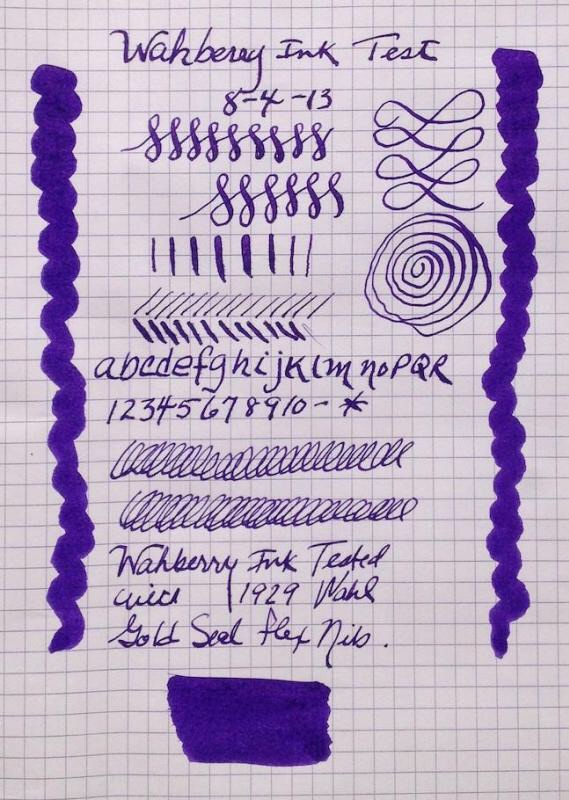 Wahberry Ink Test
8-4-13
abcdefghijklmnoPQR
12345678910 - *
Wahberry Ink Tested
with 1929 Wahl
Gold Seal flex Nib.